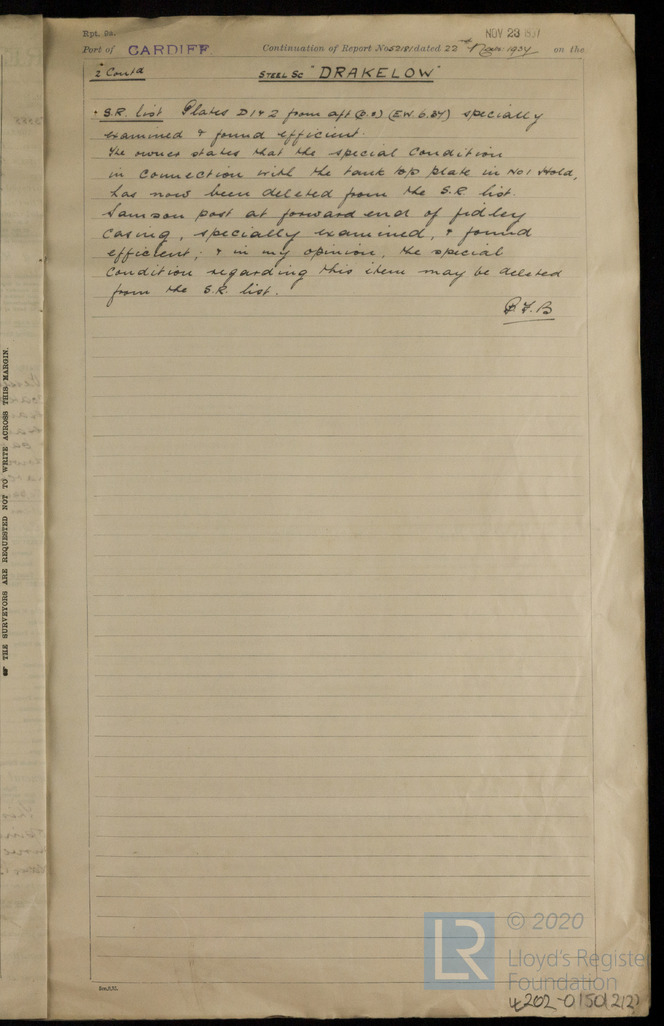 Rpt. 9a.
NOV 23 1937
Port of CARDIFF Continuation of Report No 52181 dated 22nd Nov 1937 on the
2 Contd
STEEL SC "DRAKELOW"
S.R. list Plates D1 & 2 from aft (E.W. 6.34) specially
examined & found efficient.
The owner states that the special condition
in connection with the tank top plate in No 1 Hold,
has now been deleted from the S.R. list.
Samson post at forward end of fidley
casing, specially examined, & found
efficient; & in my opinion, the special
condition regarding this item may be deleted
from the S.R. list.
THE SURVEYORS ARE REQUESTED NOT TO WRITE ACROSS THIS MARGIN.
© 2020
LR
Lloyd's Register
Foundation